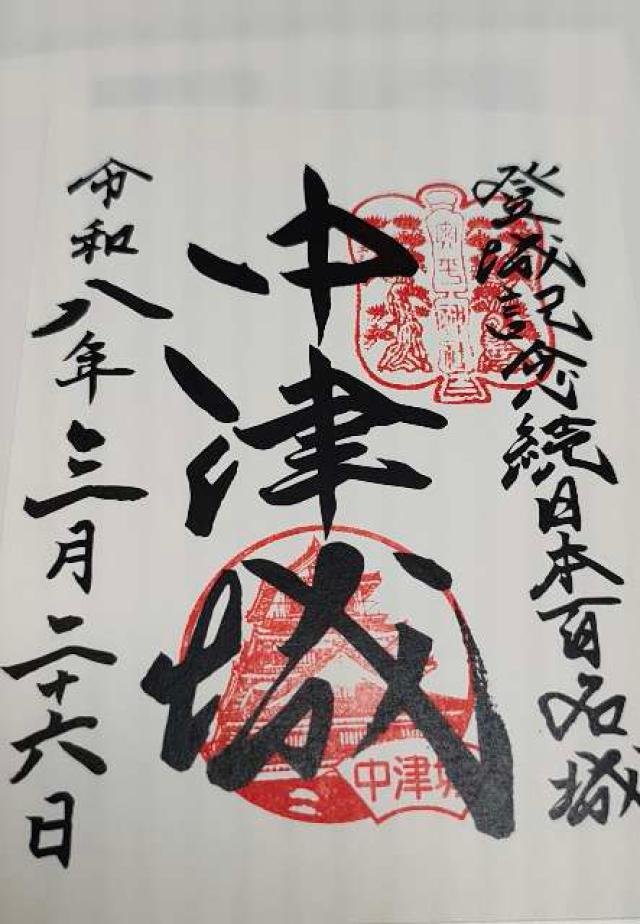 登城記念続日本百名城
中津城
令和八年三月二十六日
奥平神社
中津城